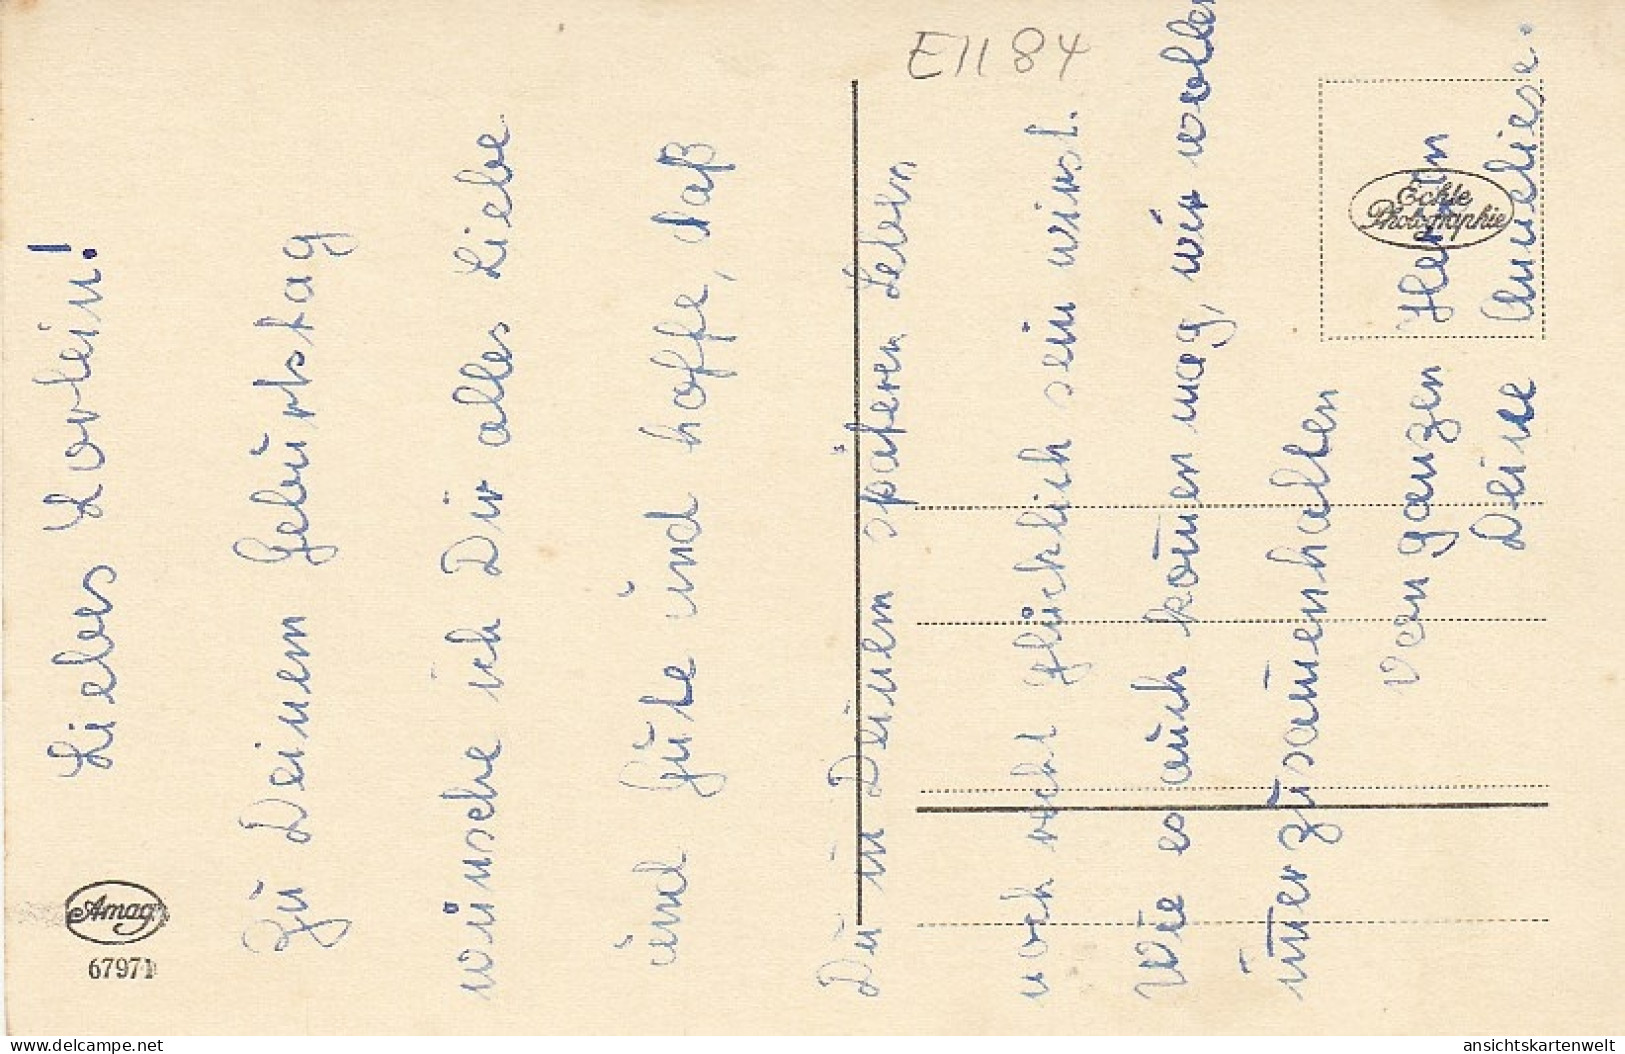 Liebes Lorlein!
Zu Deinem Geburtstag
wünsche ich Dir alles Liebe
und Gute und hoffe, daß
Du in Deinem späteren Leben
noch recht glücklich sein wirst.
Wie es auch kom̄en mag, wir wollen
im̄er zusam̄enhalten
von ganzen Herzen
Deine Anneliese.
E1184
Echte
Photographie
Amag
67971
ansichtskartenwelt
delcampe.net